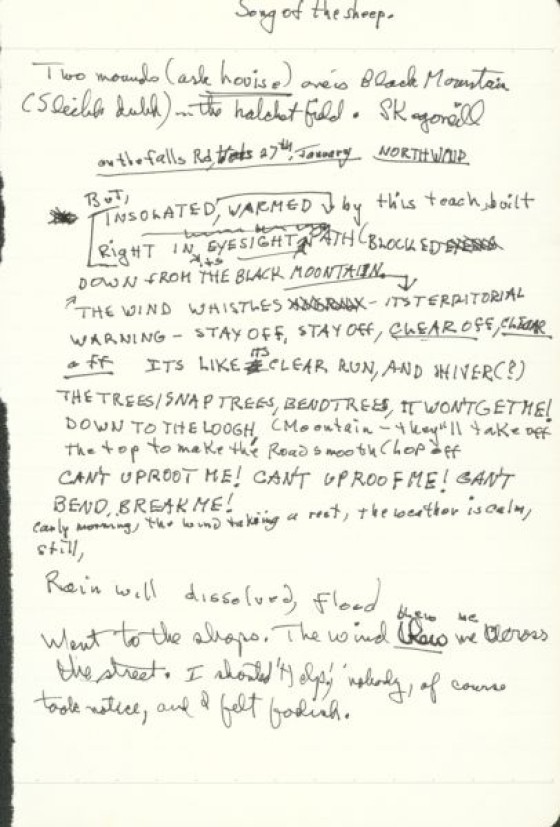 Song of the sheep.
Two mounds (ask house) over Black Mountain
(Sleibh dubh) in the hatchet field.
on the falls Rd, 27th, January NORTH WIND
But,
INSOLATED, WARMED by this teach, built
RIGHT IN EYESIGHT PATH (BLOCKED
ITS
DOWN FROM THE BLACK MOUNTAIN.
THE WIND WHISTLES - ITS TERRITORIAL
WARNING - STAY OFF, STAY OFF, CLEAR OFF, CLEAR
off ITS LIKE ITS CLEAR RUN, AND SHIVER(?)
THE TREES/SNAP TREES, BEND TREES, IT WON'T GET ME!
DOWN TO THE LOUGH, (Mountain - they'll take off
the top to make the Road smooth Chop off
CANT UPROOT ME! CANT UPROOF ME! CANT
BEND, BREAK ME!
early morning, the wind taking a rest, the weather is calm,
still,
Rain will dissolved, flood
blew me
Went to the shops. The wind blew me across
the street. I should 'Help,' nobody, of course
took notice, and I felt foolish.